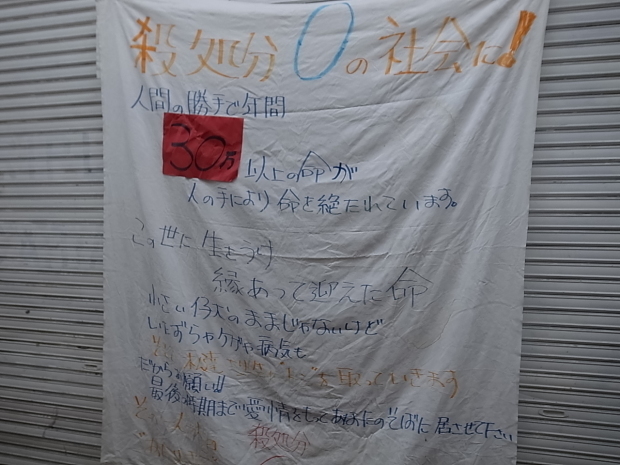 殺処分0の社会に!!
人間の勝手で年間
30万以上の命が
人の手により命を絶たれています。
この世に生をうけ
縁あって迎えた命
小さい仔犬のままじゃないけど
いたずらやケガや病気も
を取っていきます
だからお願い!!
最後の時期まで愛情をとしてあなたのそばに居させて下さい
殺処分